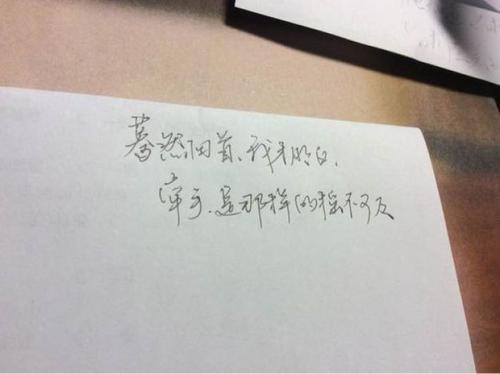 蓦然回首、我才明白.
牵手.是那样的遥不可及